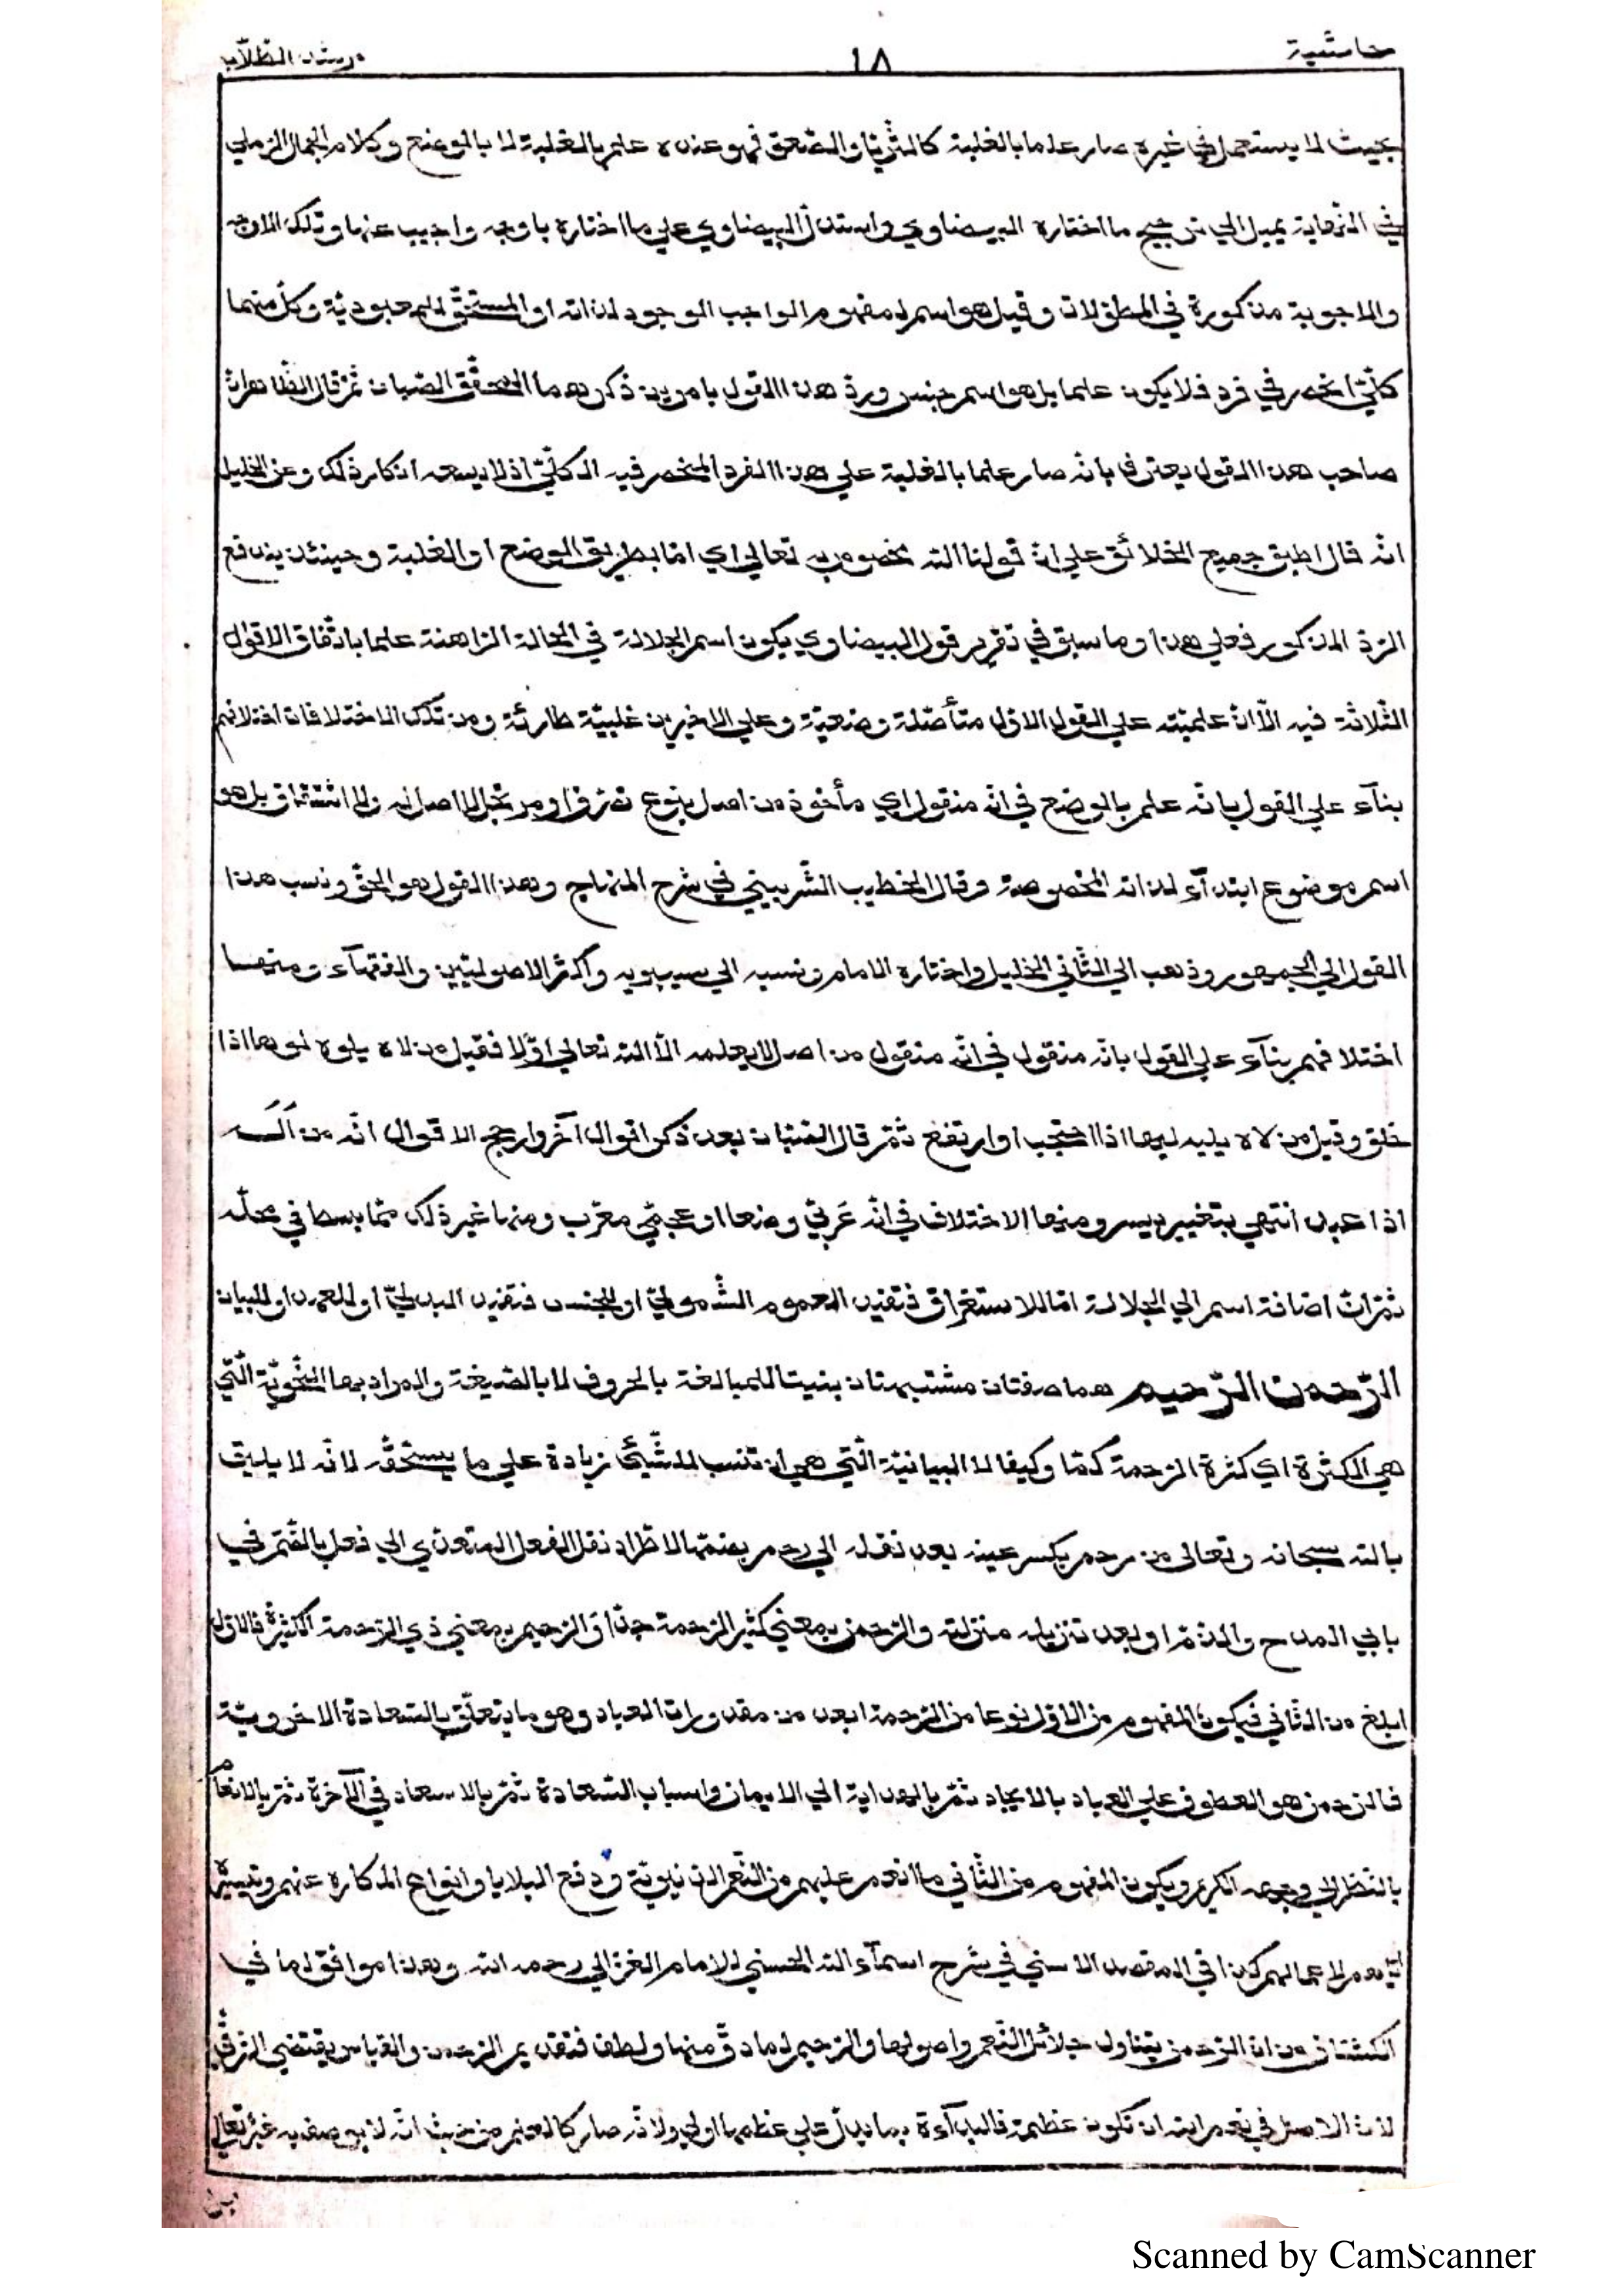 حاشية ١٨ مرشد الطّلّاب
بحيث لا يستعمل في غيره صار علما بالغلبة كالثّريّا والصّعق فهو عنده علم بالغلبة لا بالوضع وكلام الجمال الرّملي
في النّهاية يميل الي ترجيح ما اختاره البيضاوي واستدلّ البيضاوي علي ما اختاره باوجه واجيب عنها وتلك الاوجه
والاجوبة مذكورة في المطوّلات وقيل هو اسم لمفهوم الواجب الوجود لذاته او المستحقّ للمعبوديّة وكلّ منهما
كلّيّ انحصر في فرد فلا يكون علما بل هو اسم جنس وردّ هذا القول بامرين ذكرهما المحقّق الصّبان ثمّ قال الظّاهر انّ
صاحب هذا القول يعترف بانّه صار علما بالغلبة علي هذا الفرد المنحصر فيه الكلّيّ اذ لا يسعه انكار ذلك وعن الخليل
انّه قال اطبق جميع الخلائق علي انّ قولنا الله مخصوص به تعالي اي امّا بطريق الوضع او الغلبة وحينئذ يندفع
الرّدّ المذكور فعلي هذا وما سبق في تقرير قول البيضاوي يكون اسم الجلالة في الحالة الرّاهنة علما باتّفاق الاقوال
الثّلاثة فيه الّا انّ علميّته علي القول الاوّل متأصّلة وضعيّة وعلي الاخيرين غلبيّة طارئة ومن تلك الاختلافات اختلافهم
بنآء علي القول بانّه علم بالوضع في انّه منقول اي مأخوذ من اصل بنوع تصرّف او مرتجل لا اصل له ولا اشتقاق بل هو
اسم موضوع ابتدآء لذاته المخصوصة وقال الخطيب الشّربيني في شرح المنهاج وهذا القول هو الحقّ ونسب هذا
القول الي الجمهور وذهب الي الثّاني الخليل واختاره الامام ونسبه الي سيبويه واكثر الاصوليّين والفقهآء ومنها
اختلافهم بنآء علي القول بانّه منقول في انّه منقول من اصل لا يعلمه الّا الله تعالي اوّلا فقيل من لاه يلوه لوها اذا
خلق وقيل من لاه يليه ليها اذا احتجب او ارتفع ثمّ قال الصّبّان بعد ذكر اقوال آخر وارجح الاقوال انّه من اَلَه
اذا عبد انتهي بتغيير يسير ومنها الاختلاف في انّه عَربيّ وضعا او عجميّ معرّب ومنها غير ذلك ممّا بسط في محلّه
ثمّ انّ اضافة اسم الي الجلالة امّا للاستغراق فتفيد العموم الشّموليّ او للجنس فتفيد البدليّ او للعهد او للبيان
الرّحمن الرّحيم هما صفتان مشتبهتان بنيتا للمبالغة بالحروف لا بالصّيغة والمراد بها النّحويّة الّتي
هي الكثرة اي كثرة الرّحمة كمّا وكيفا لا البيانيّة الّتي هي ان تنسب للشّيئ زيادة علي ما يستحقّه لانّه لا يليق
بالله سبحانه وتعالي من رحم بكسر عينه بعد نقله الي رحم بضمّها لاطّراد نقل الفعل المتعدّي الي فعل بالضّمّ في
بابي المدح والذّمّ او بعد تنزيله منزلته والرّحمن بمعني كثير الرّحمة جدّا والرّحيم بمعني ذي الرّحمة الكثيرة فالاوّل
ابلغ من الثّاني فيكون المفهوم من الاوّل نوعا من الرّحمة ابعد من مقدورات العباد وهو ما يتعلّق بالسّعادة الاخرويّة
فالرّحمن هو العطوف علي العباد بالايجاد ثمّ بالهداية الي الايمان واسباب السّعادة ثمّ بالاسعاد في الآخرة ثمّ بالانعام
بالنّظر الي وجهه الكريم ويكون المفهوم من الثّاني ما انعم عليهم من النّعم الدّنيويّة ودفع البلايا وانواع المكاره عنهم وتيسيره
ايّاهم لاعمالهم كذا في المقصد الاسني في شرح اسمآء الله الحسني للامام الغزالي رحمه الله وهذا موافق لما في
الكشّاف من انّ الرّحمن يتناول جلائل النّعم واصولها والرّحيم لما دقّ منها ولطف فتقديم الرّحمن والقياس يقتضي التّرقّي
لانّ الاصل في نعم الله ان تكون عظيمة فالبدآءة بما يدلّ علي عظمها اولي ولانّه صار كالعلم من حيث انّه لا يوصف به غيره تعالي
Scanned by CamScanner